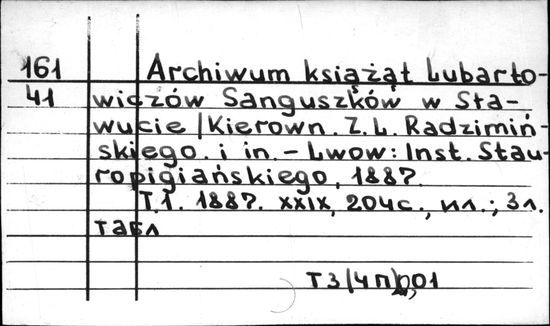 161 Archiwum książąt Lubarto-
41 wiczów Sanguszków w Sła-
wucie / Kierown. Z. L. Radzimiń-
skiego. i in. - Lwow: Inst. Stau-
ropigiańskiego, 1887.
T.1. 1887. XXIX, 204 с., ил.; 3 л.
табл